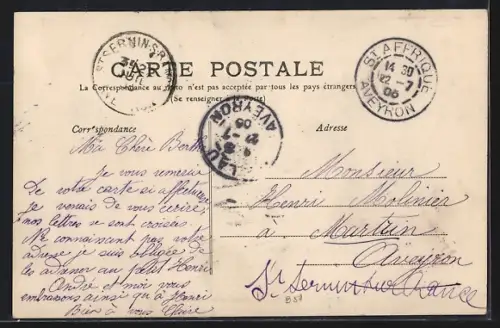 ST SERNIN-SR-
CARTE POSTALE
La Correspondance au recto n'est pas acceptée par tous les pays étrangers
(Se renseigner
ST AFFRIQUE
14 30
22 - 7
06
AVEYRON
AVEYRON
Correspondance
Adresse
Ma Chère Berthe
Je vous remercie
de votre carte si affectueuse
je venais de vous écrire,
nos lettres se sont croisées.
Ne connaissant pas votre
adresse je suis obligée de
les adresser au petit Henri
André et moi vous
embrassons ainsi qu'à Henri
Bien à vous Claire
Monsieur
Henri Molinier
à Martrin
Aveyron
St Sernin sur Rance